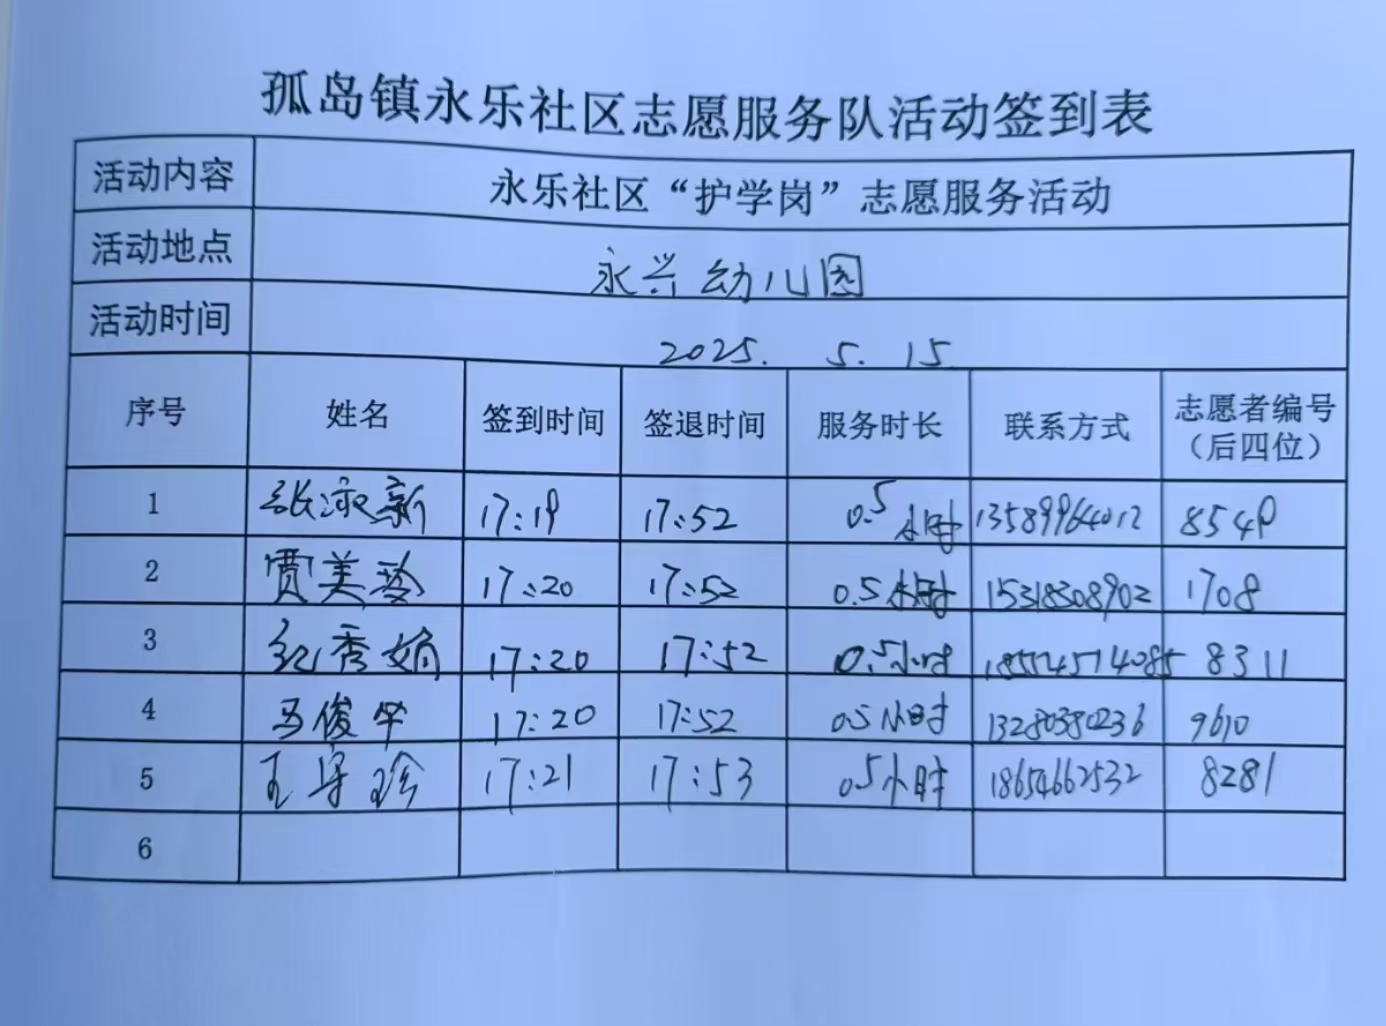 孤岛镇永乐社区志愿服务队活动签到表
活动内容 永乐社区“护学岗”志愿服务活动
活动地点 永兴幼儿园
活动时间 2025. 5. 15
序号 姓名 签到时间 签退时间 服务时长 联系方式 志愿者编号（后四位）
1 张淑新 17:19 17:52 0.5小时 13589964012
2 贾美玲 17:20 17:52 0.5小时 15318308902 1708
3 纪秀娟 17:20 17:52 0.5小时 8311
4 马俊华 17:20 17:52 0.5小时 13280380236 9610
5 王学珍 17:21 17:53 0.5小时 18654662532 8281
6